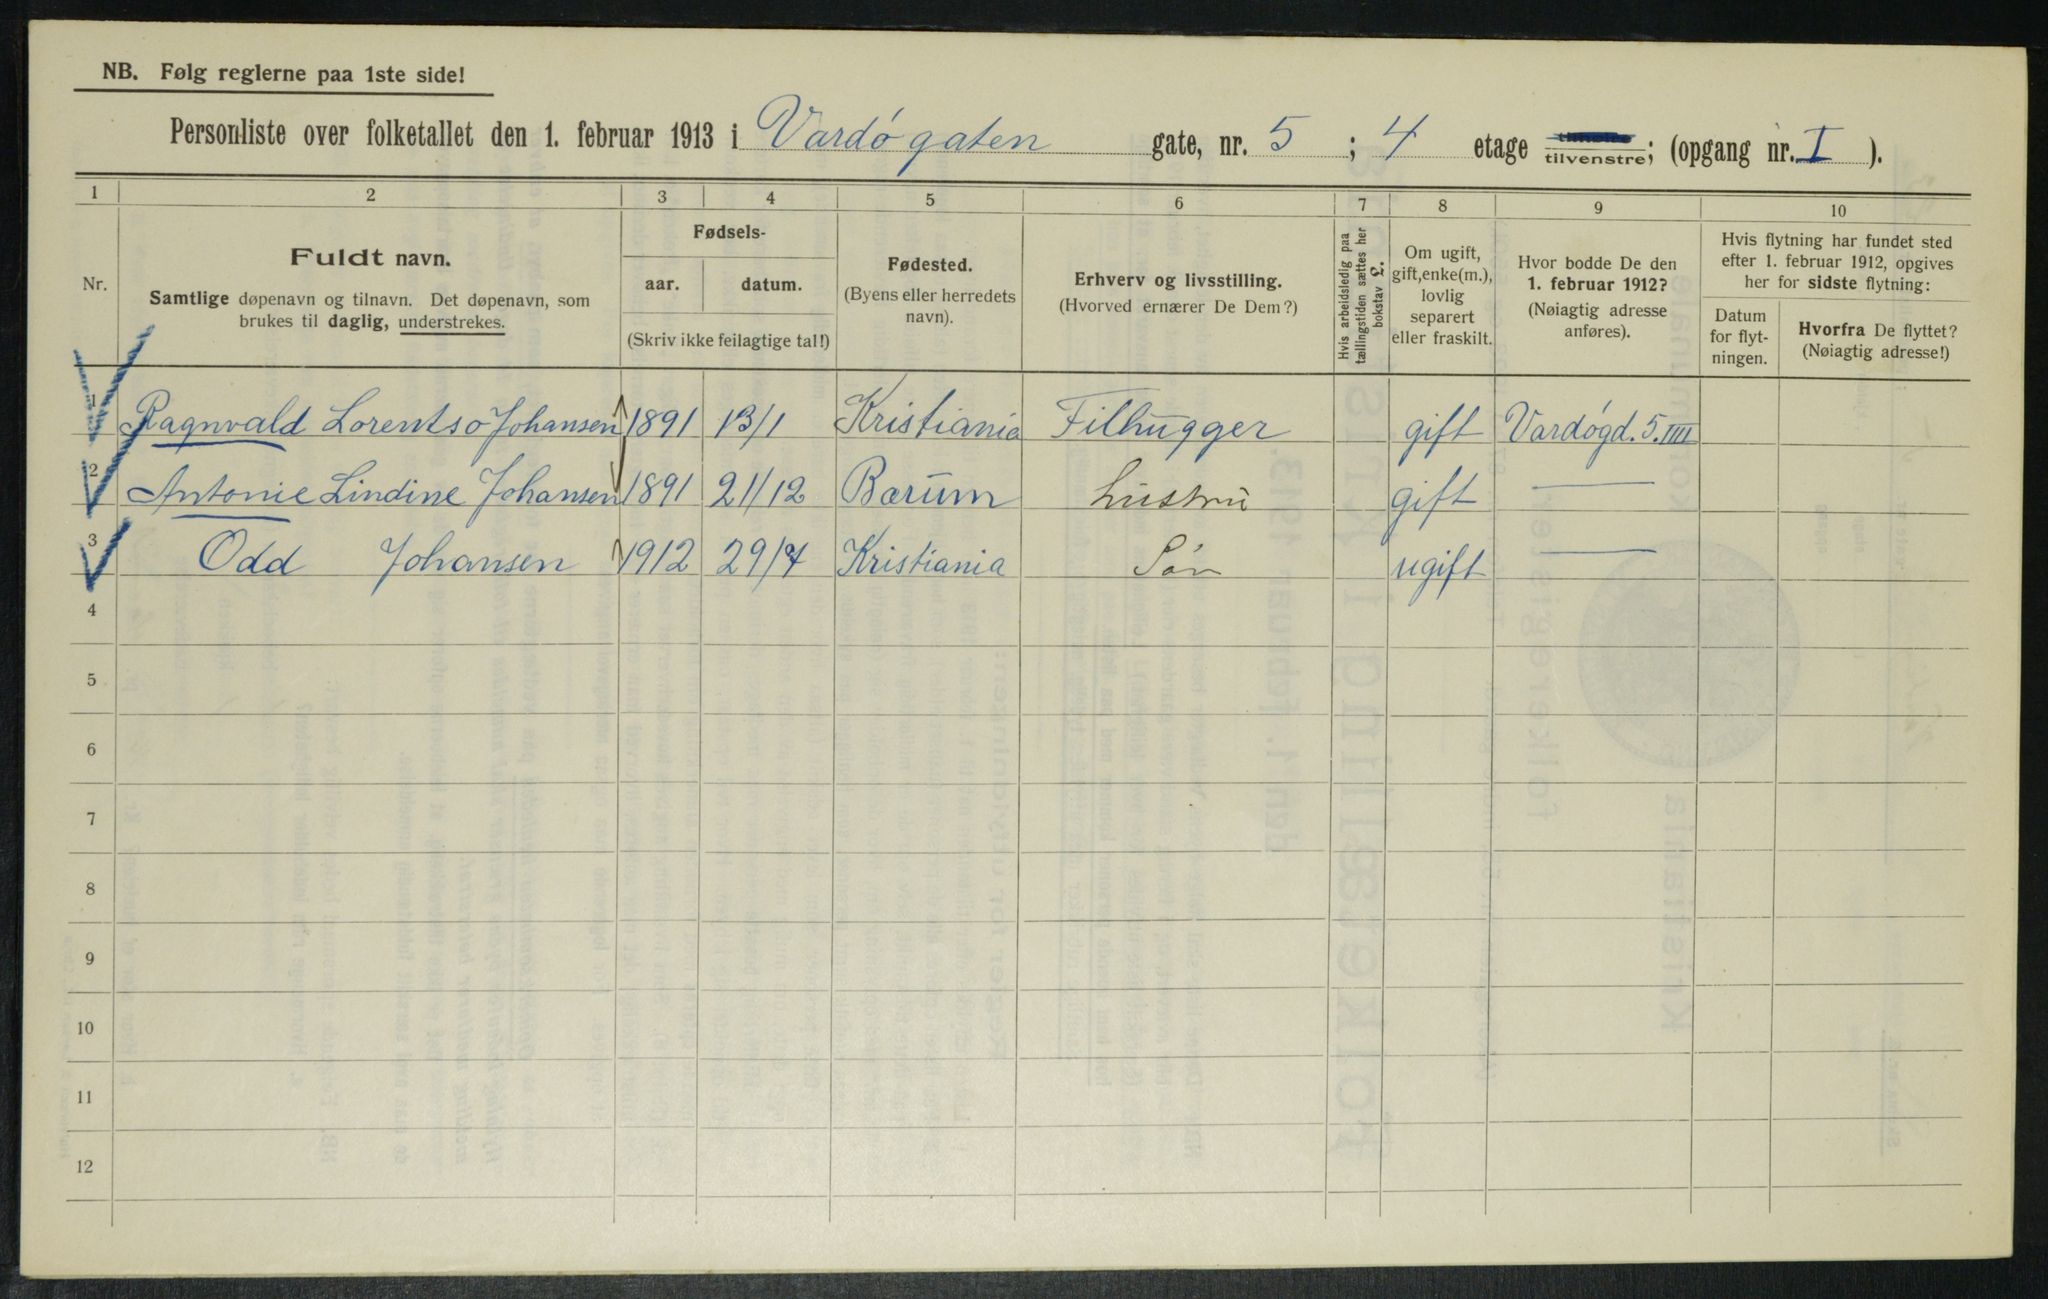 NB. Følg reglerne paa 1ste side!
Personliste over folketallet den 1. februar 1913 i Vardøgaten gate, nr. 5 ; 4 etage tilvenstre; (opgang nr. I ).
1 2 3 4 5 6 7 8 9 10
Nr.
Fuldt navn.
Samtlige døpenavn og tilnavn. Det døpenavn, som
brukes til daglig, understrekes.
Fødsels-
aar. datum.
(Skriv ikke feilagtige tal!)
Fødested.
(Byens eller herredets
navn).
Erhverv og livsstilling.
(Hvorved ernærer De Dem?)
Hvis arbeidsledig paa
tællingstiden sættes her
bokstav L.
Om ugift,
gift, enke(m.),
lovlig
separert
eller fraskilt.
Hvor bodde De den
1. februar 1912?
(Nøiagtig adresse
anføres).
Hvis flytning har fundet sted
efter 1. februar 1912, opgives
her for sidste flytning:
Datum
for flyt-
ningen.
Hvorfra De flyttet?
(Nøiagtig adresse!)
1 Ragnvald Lorentso Johansen 1891 13/1 Kristiania Filhugger gift Vardøgd. 5. IIII
2 Antonie Lindine Johansen 1891 21/12 Bærum hustru gift —
3 Odd Johansen 1912 29/7 Kristiania Søn ugift —
4
5
6
7
8
9
10
11
12